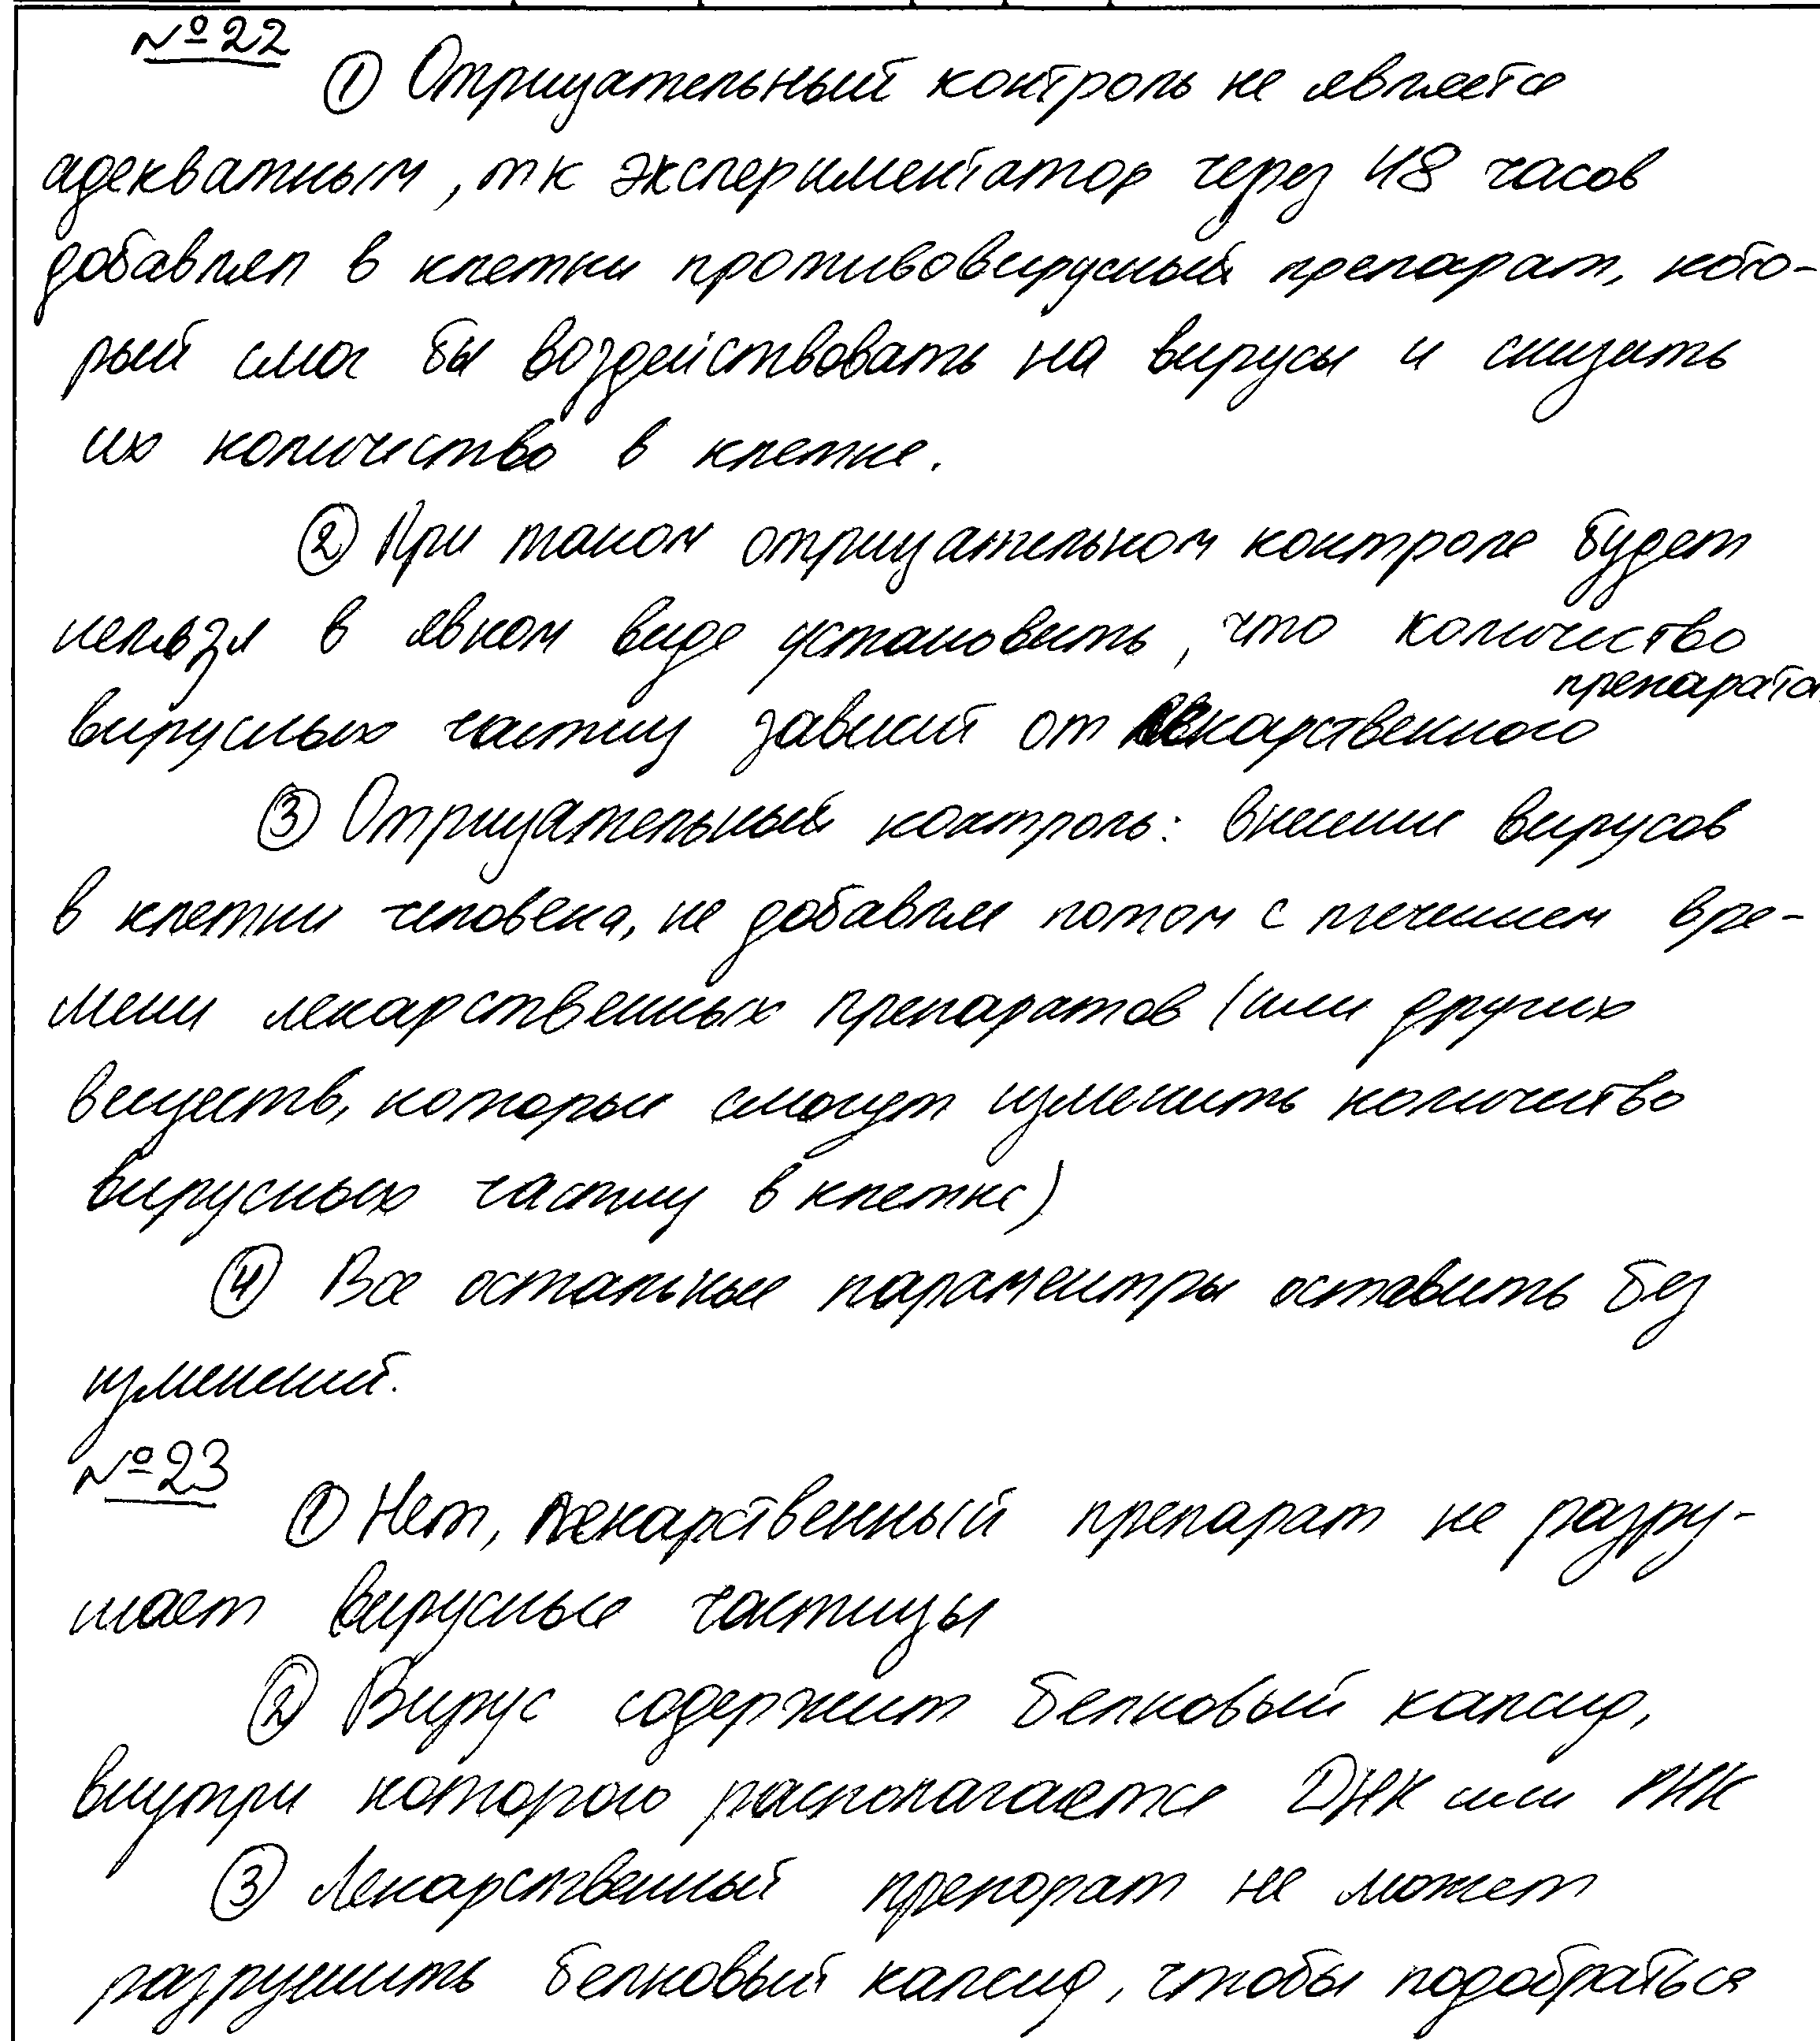 №22
① Отрицательный контроль не является
адекватным, тк экспериментатор через 48 часов
добавлял в клетки противовирусный препарат, кото-
рый смог бы воздействовать на вирусы и снизить
их количество в клетке.
② При таком отрицательном контроле будет
нельзя в явном виде установить, что количество
вирусных частиц зависит от лекарственного препарата
③ Отрицательный контроль: внесении вирусов
в клетки человека, не добавляя потом с течением вре-
мени лекарственных препаратов (или других
веществ, которые смогут изменить количество
вирусных частиц в клетке)
④ Все остальные параментры оставить без
изменений.
№23
① Нет, лекарственный препарат не разру-
шает вирусные частицы
② Вирус содержит белковый капсид,
внутри которого располагается ДНК или РНК
③ Лекарственный препорат не может
разрушить белковый капсид, чтобы подобраться